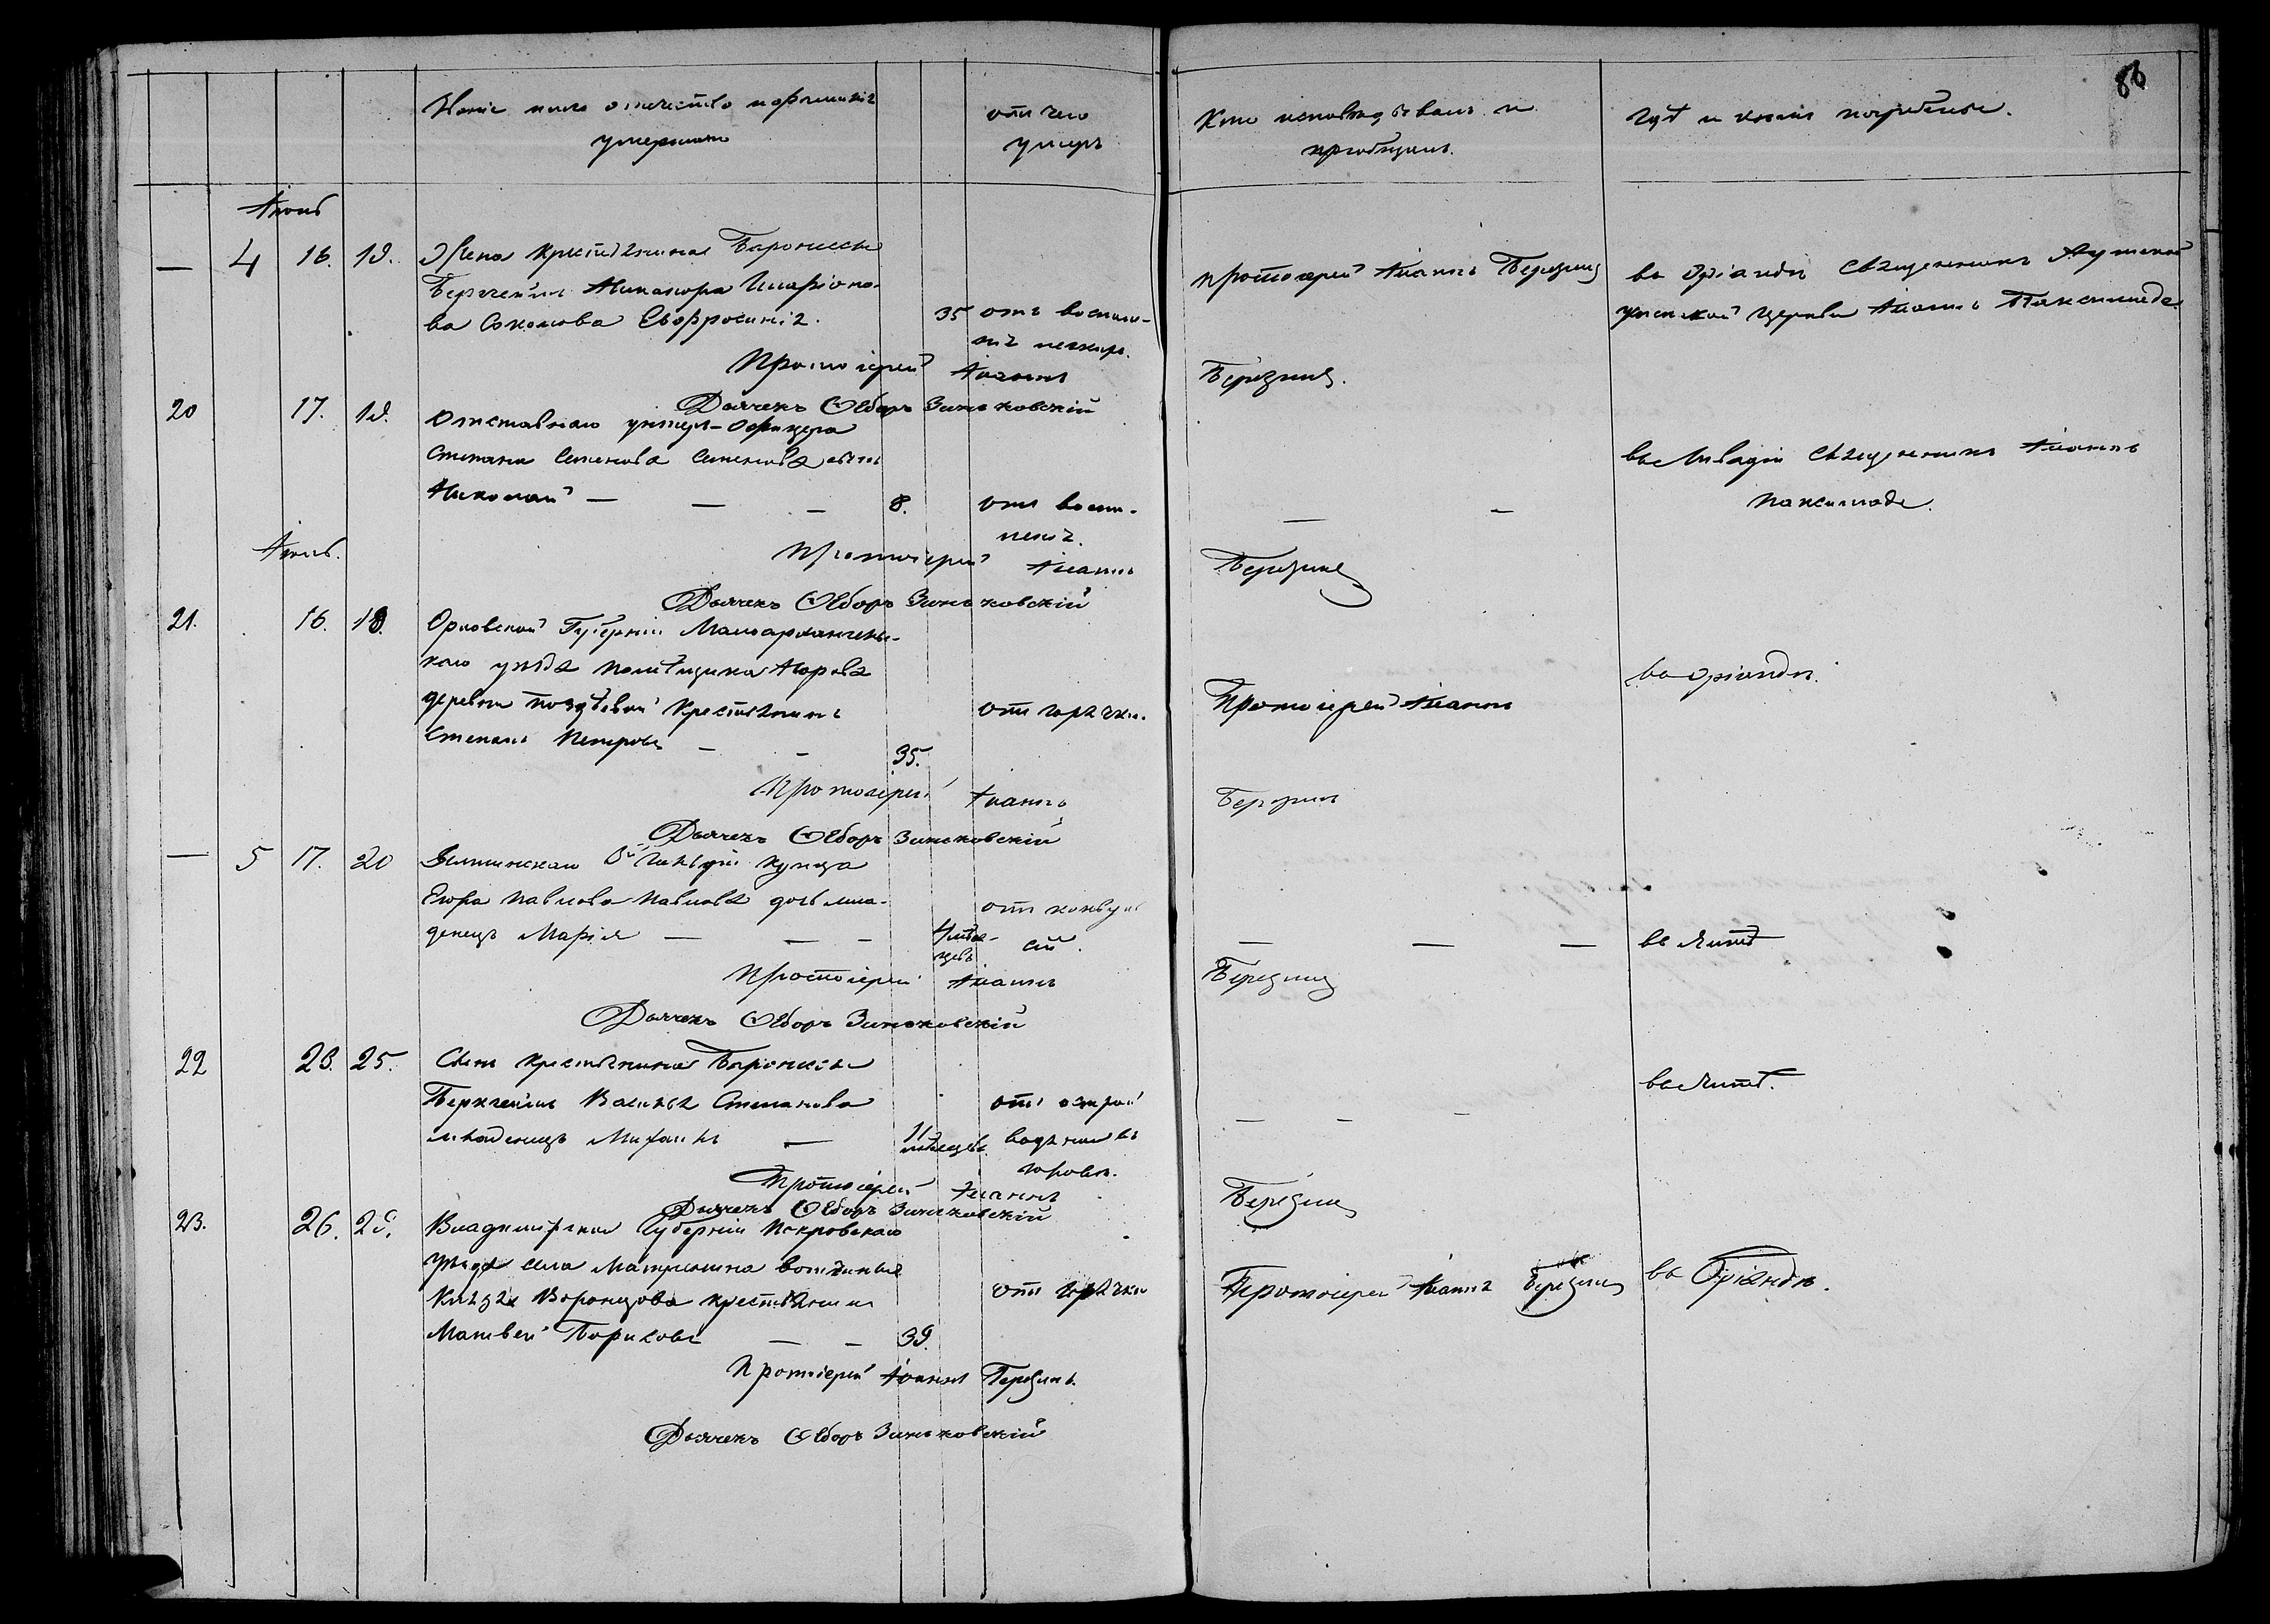 88
имя отчество и фамилія
умершаго
отъ чего
умеръ
Кто исповѣдывалъ и
пріобщалъ.
Гдѣ и кѣмъ погребены.
Іюнь
— 4 16. 19. Жена крестьянина Баронессы
Берхгеймъ Никанора Иларіоно-
ва Соколова Евфросинія. 35 отъ воспале-
нія
протоіерей Іоаннъ Березинъ
въ Оріандѣ Священникъ Аутской
церкви Іоаннъ
Протоіерей Іоаннъ Березинъ.
Дьячекъ Ѳедоръ Зиньковскій
20 17. 19. Отставнаго унтеръ-Офицера
Степана Семенова сынъ
Николай — — — 8. отъ воспа-
ленія.
— —
въ Ливадіи Священникъ Іоаннъ
Протоіерей Іоаннъ Березинъ
Дьячекъ Ѳедоръ Зиньковскій
Іюль.
21. 16. 18. Орловской Губерніи Малоархангель-
скаго уѣзда помѣщика
деревни Крестьянинъ
Степанъ Петровъ — — 35. отъ горячки.
Протоіерей Іоаннъ
въ Оріандѣ.
Протоіерей Іоаннъ Березинъ
Дьячекъ Ѳедоръ Зиньковскій
— 5 17. 20 Ялтинскаго гильдіи купца
Егора Павлова Павлова дочь мла-
денецъ Марія — — — 4 мѣся-
цевъ
отъ конвуль
сій.
— — — въ Ялтѣ
Протоіерей Іоаннъ Березинъ
Дьячекъ Ѳедоръ Зиньковскій
22 23. 25. Сынъ крестьянина Баронессы
Берхгеймъ Степанова
младенецъ Михаилъ — 11
мѣсяцевъ.
отъ острой
водянки въ
головѣ.
— — —
въ Ялтѣ.
Протоіерей Іоаннъ Березинъ
Дьячекъ Ѳедоръ Зиньковскій
23. 26. Владимирской Губерніи Покровскаго
уѣзда села вотчины
Князя Воронцова крестьянинъ
Матвей — — 39. отъ горячки
Протоіерей Іоаннъ Березинъ
въ Оріандѣ.
Протоіерей Іоаннъ Березинъ.
Дьячекъ Ѳедоръ Зиньковскій